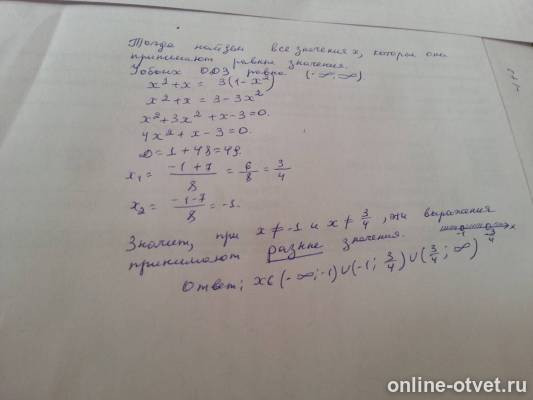 Тогда найдём все значения x, которые они
принимают равные значения.
У обоих ОДЗ равна (-∞;∞).
x²+x = 3(1-x²)
x²+x = 3-3x²
x²+3x²+x-3=0.
4x²+x-3=0.
D=1+48=49.
x₁= (-1+7)/8 = 6/8 = 3/4
x₂= (-1-7)/8 = -1.
Значит, при x≠-1 и x≠ 3/4, эти выражения
принимают разные значения. -1 3/4 x
Ответ: x∈(-∞;-1)∪(-1; 3/4)∪(3/4; ∞)
online-otvet.ru